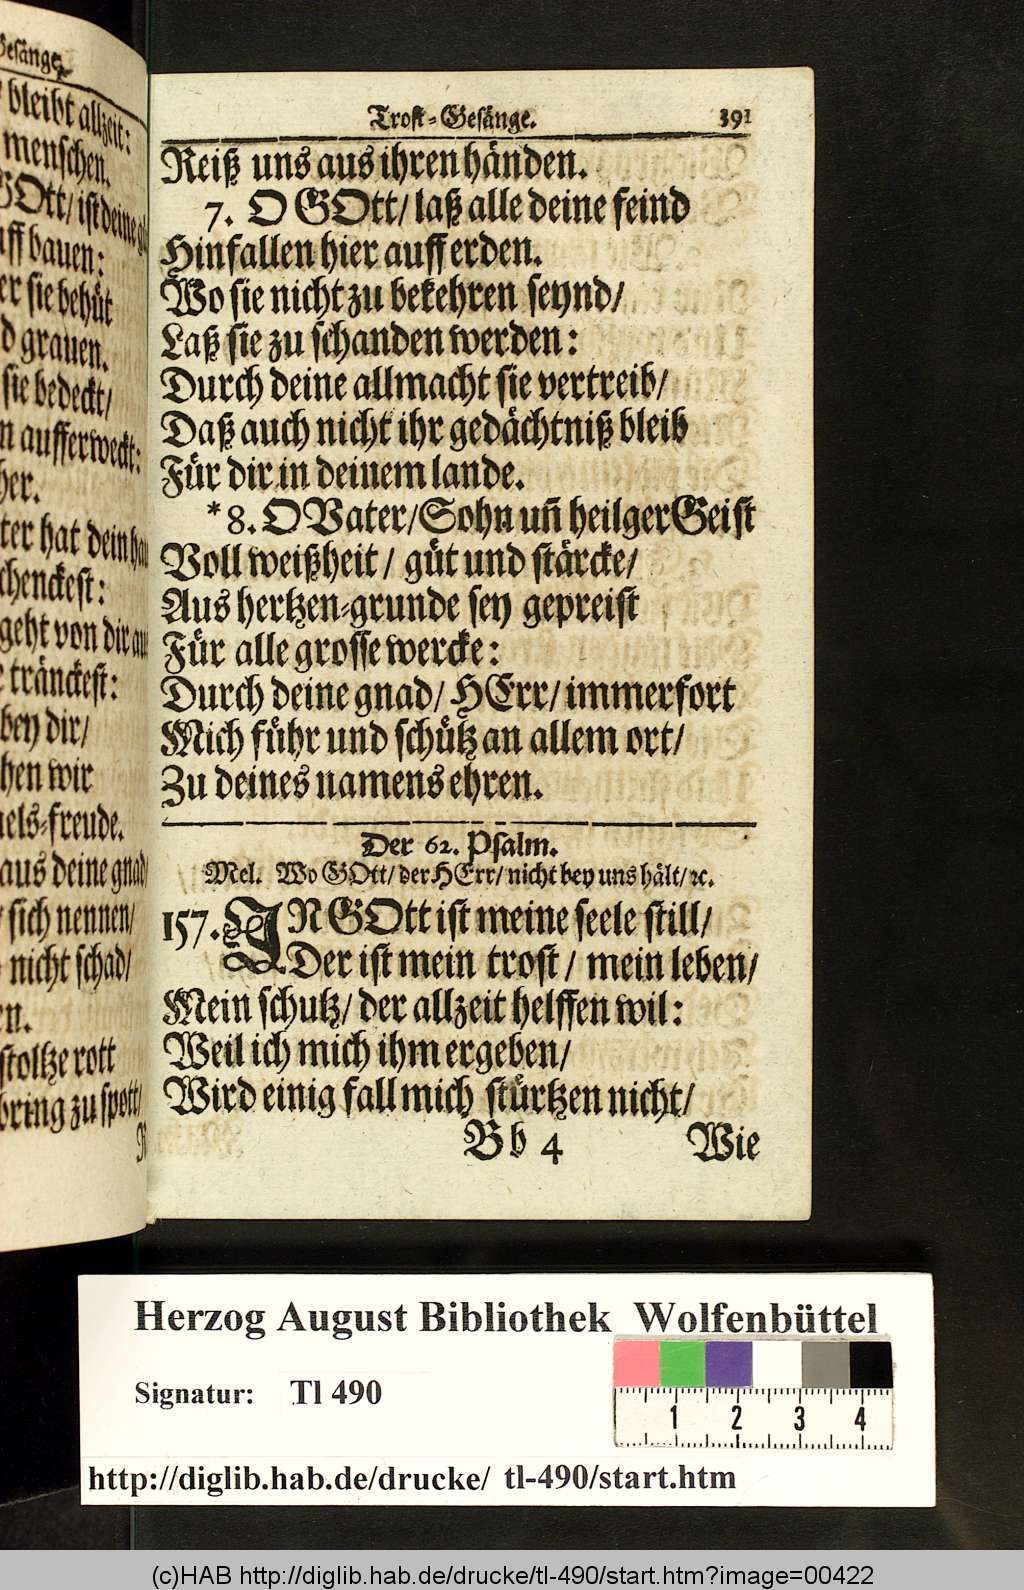 Gesänge.
bleibt allzeit:
menschen.
GOtt/ ist deine
auff bauen:
er sie behüt
grauen.
sie bedeckt/
aufferweckt:
her.
hat dein
schenckest:
geht von dir
tränckest:
bey dir/
wir
freude.
aus deine gnad/
sich nennen/
nicht schad/
stoltze rott
bring zu spott/
Trost-Gesänge. 391
Reiß uns aus ihren händen.
7. O GOtt/ laß alle deine feind
Hinfallen hier auff erden.
Wo sie nicht zu bekehren seynd/
Laß sie zu schanden werden:
Durch deine allmacht sie vertreib/
Daß auch nicht ihr gedächtniß bleib
Für dir in deinem lande.
*8. O Vater/ Sohn uñ heilger Geist
Voll weißheit/ güt und stärcke/
Aus hertzen-grunde sey gepreist
Für alle grosse wercke:
Durch deine gnad/ HErr/ immerfort
Mich führ und schütz an allem ort/
Zu deines namens ehren.
Der 62. Psalm.
Mel. Wo GOtt/ der HErr/ nicht bey uns hält/ ꝛc.
157. IN GOtt ist meine seele still/
Der ist mein trost/ mein leben/
Mein schutz/ der allzeit helffen wil:
Weil ich mich ihm ergeben/
Wird einig fall mich stürtzen nicht/
Bb 4 Wie
Herzog August Bibliothek Wolfenbüttel
Signatur: Tl 490
1 2 3 4
http://diglib.hab.de/drucke/ tl-490/start.htm
(c)HAB http://diglib.hab.de/drucke/tl-490/start.htm?image=00422